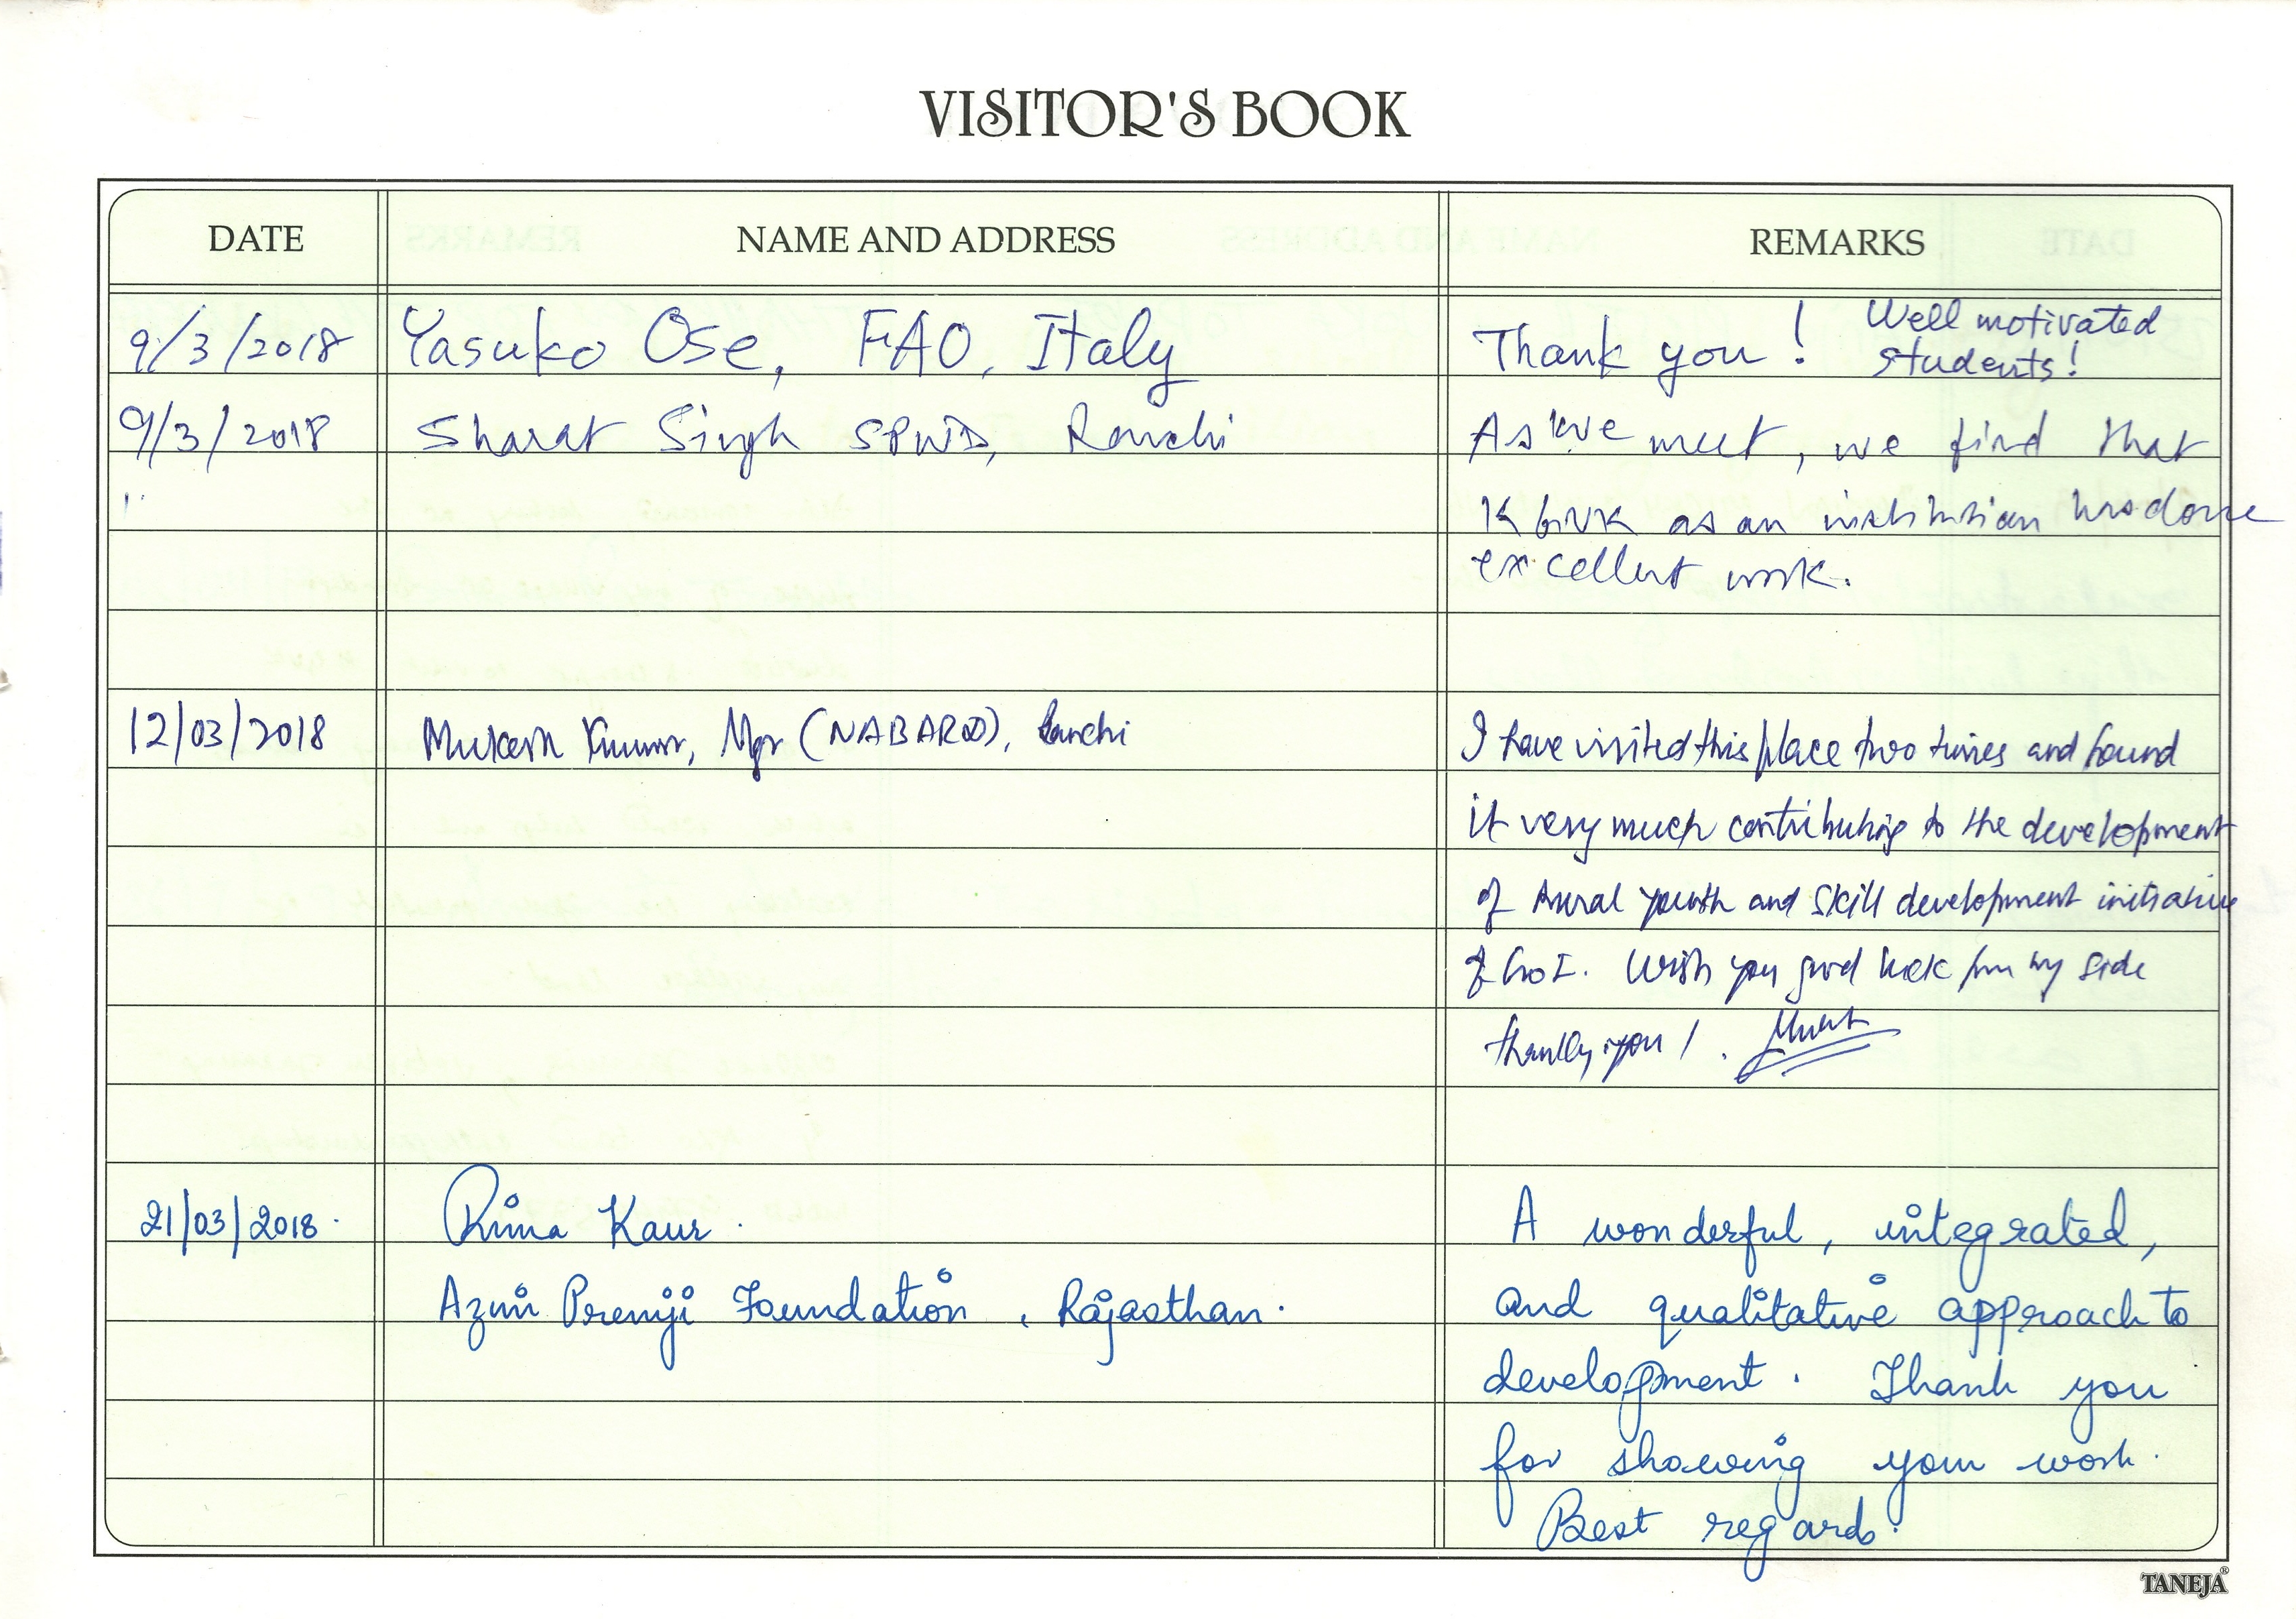 VISITOR'S BOOK
DATE NAME AND ADDRESS REMARKS
9/3/2018 Yasuko Ose, FAO, Italy Thank you! Well motivated students!
9/3/2018 Sharat Singh SPWD, Ranchi As we meet, we find that
KGVK as an institution has done
excellent work.
12/03/2018 Mukesh Kumar, Mgr (NABARD), Ranchi I have visited this place two times and found
it very much contributing to the development
of rural youth and skill development initiative
of GoI. Wish you good luck from my side
21/03/2018. Rima Kaur. A wonderful, integrated,
Azim Premji Foundation, Rajasthan. and qualitative approach to
development. Thank you
for showing your work.
Best regards.
TANEJA